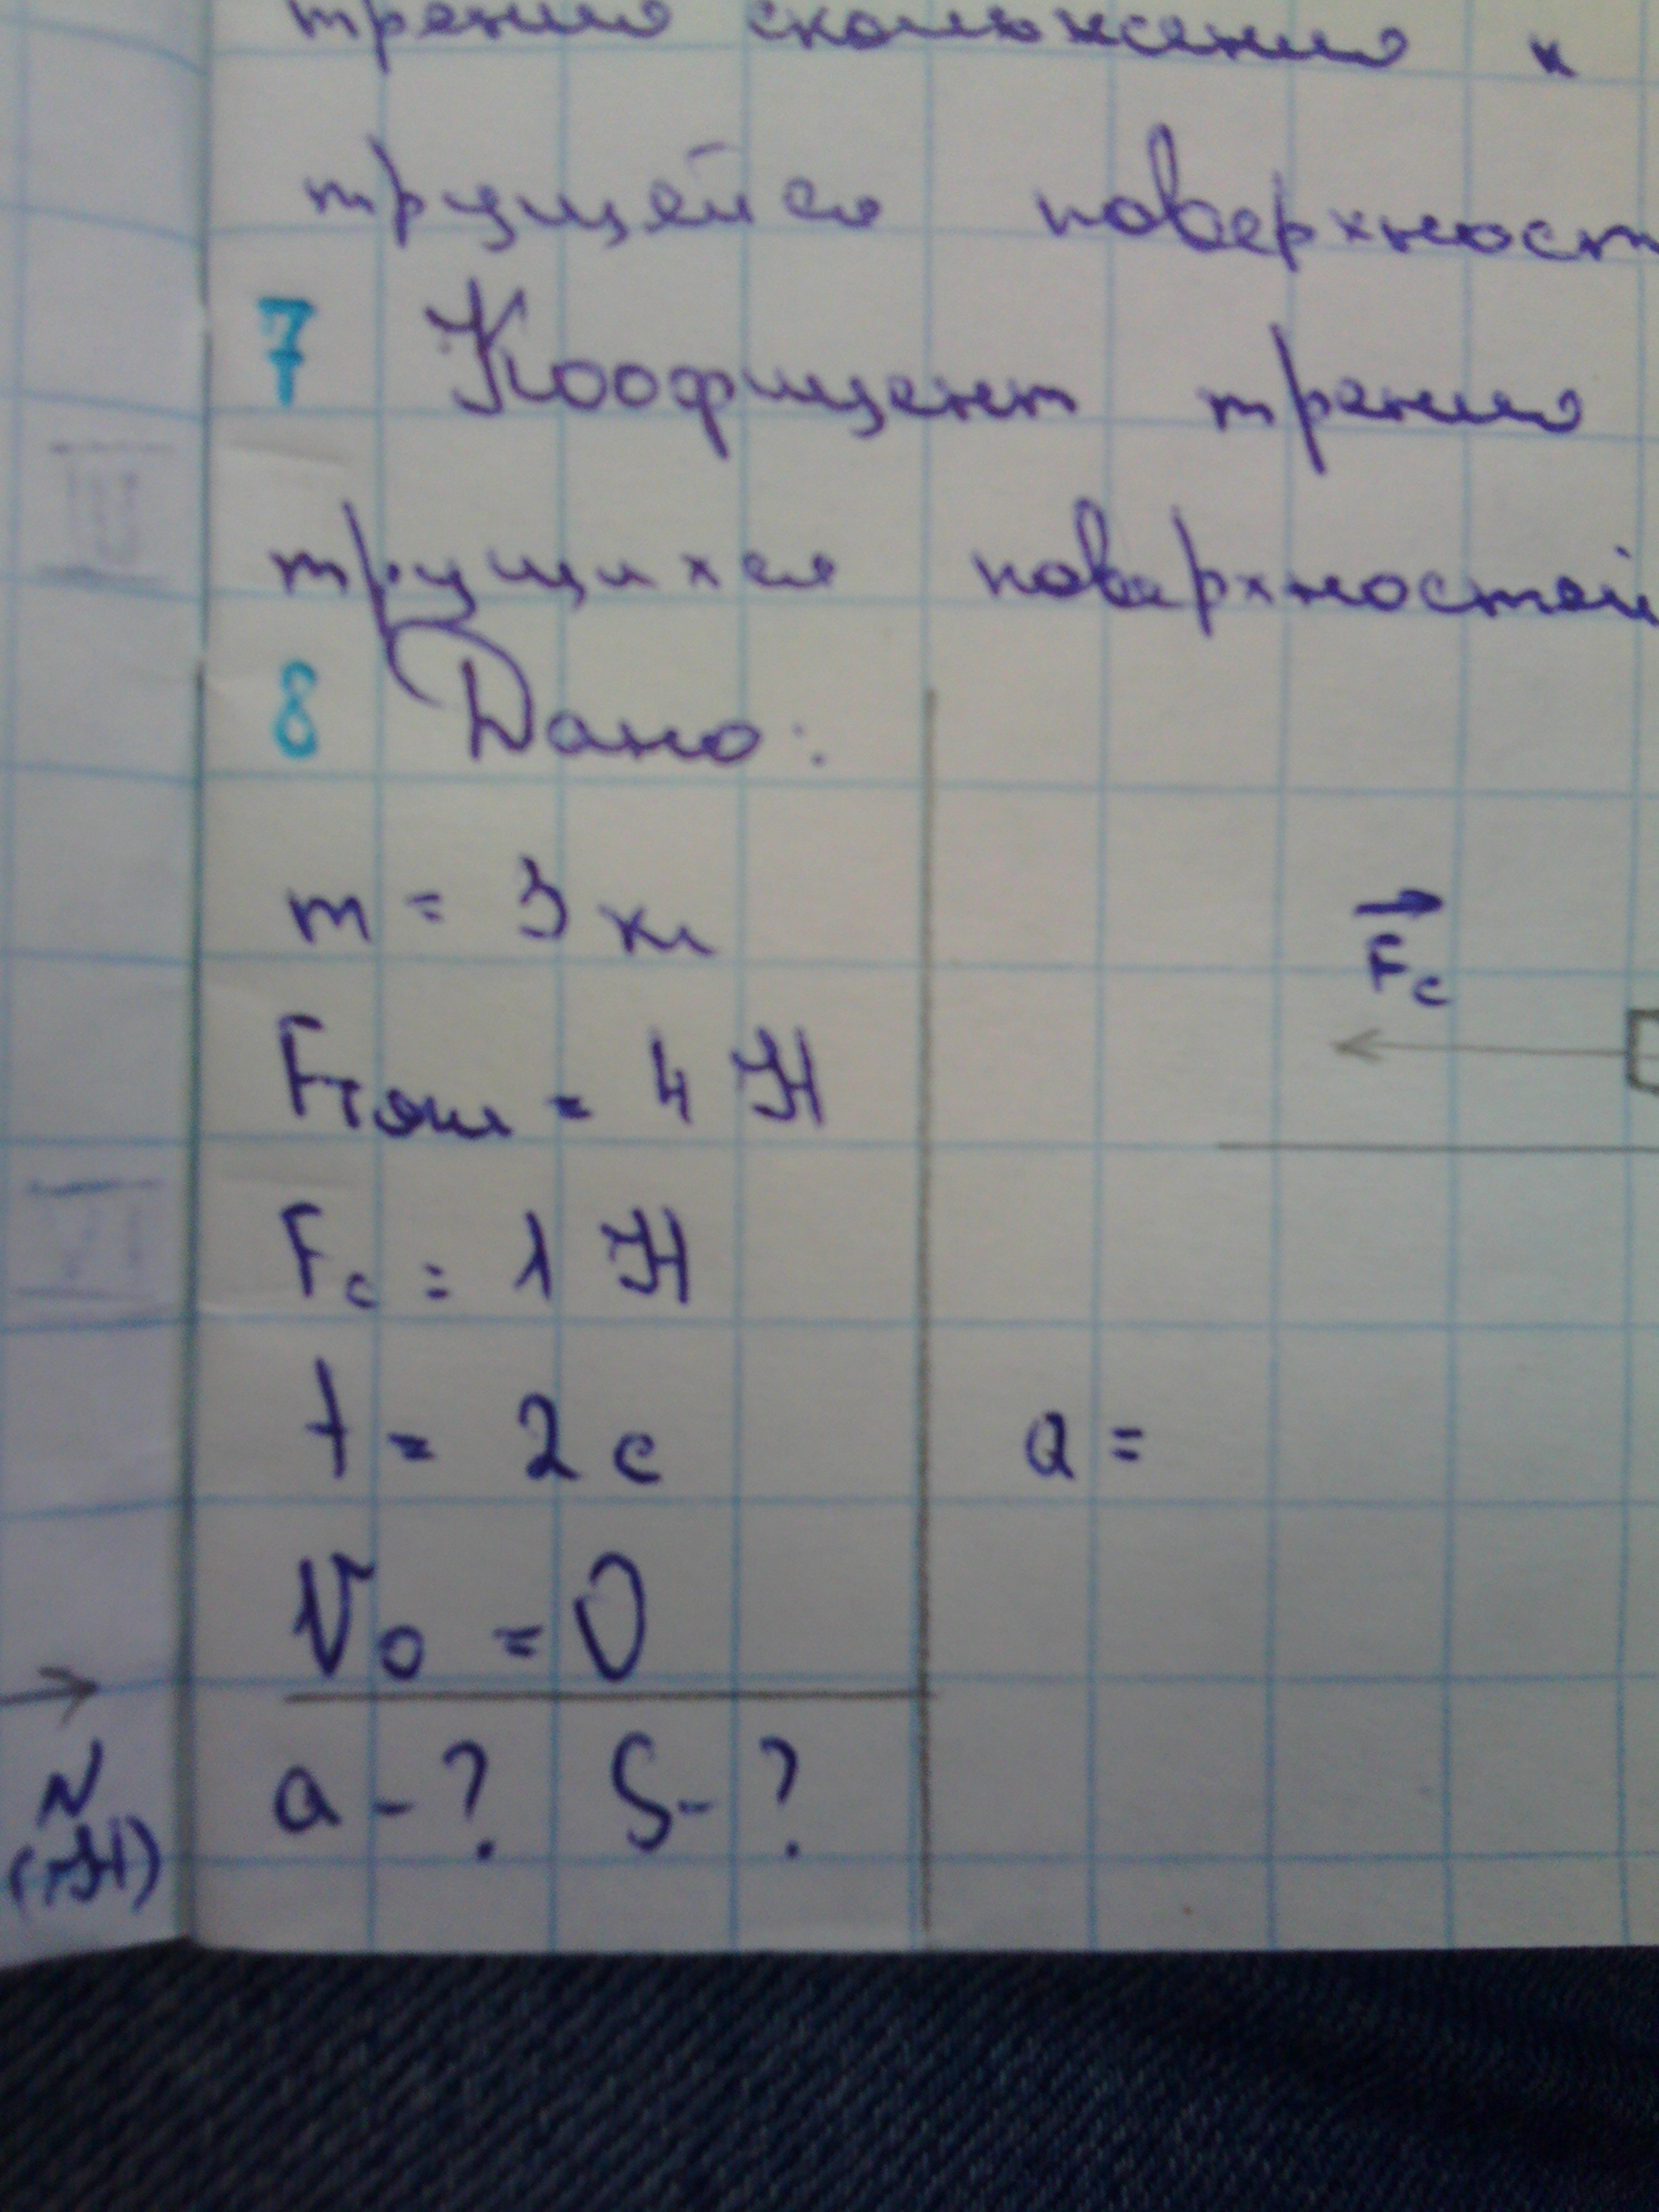 трения скольжения к
трущейся поверхност
7 Коофициент трения
трущихся поверхностей
8 Дано:
m = 3 кг
Fтяги = 4 Н
Fс
Fс = 1 Н
t = 2 с
a =
V₀ = 0
a - ? S - ?
N
(Н)